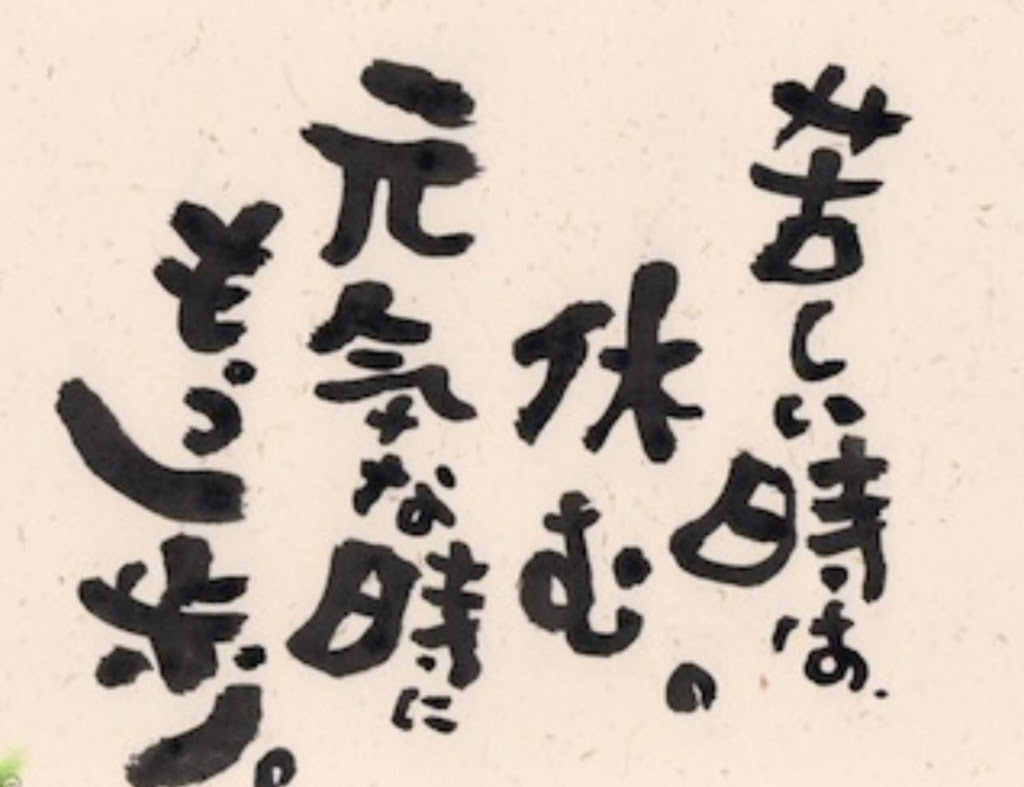 苦しい時は、
休む。
元気な時に
もう一歩。